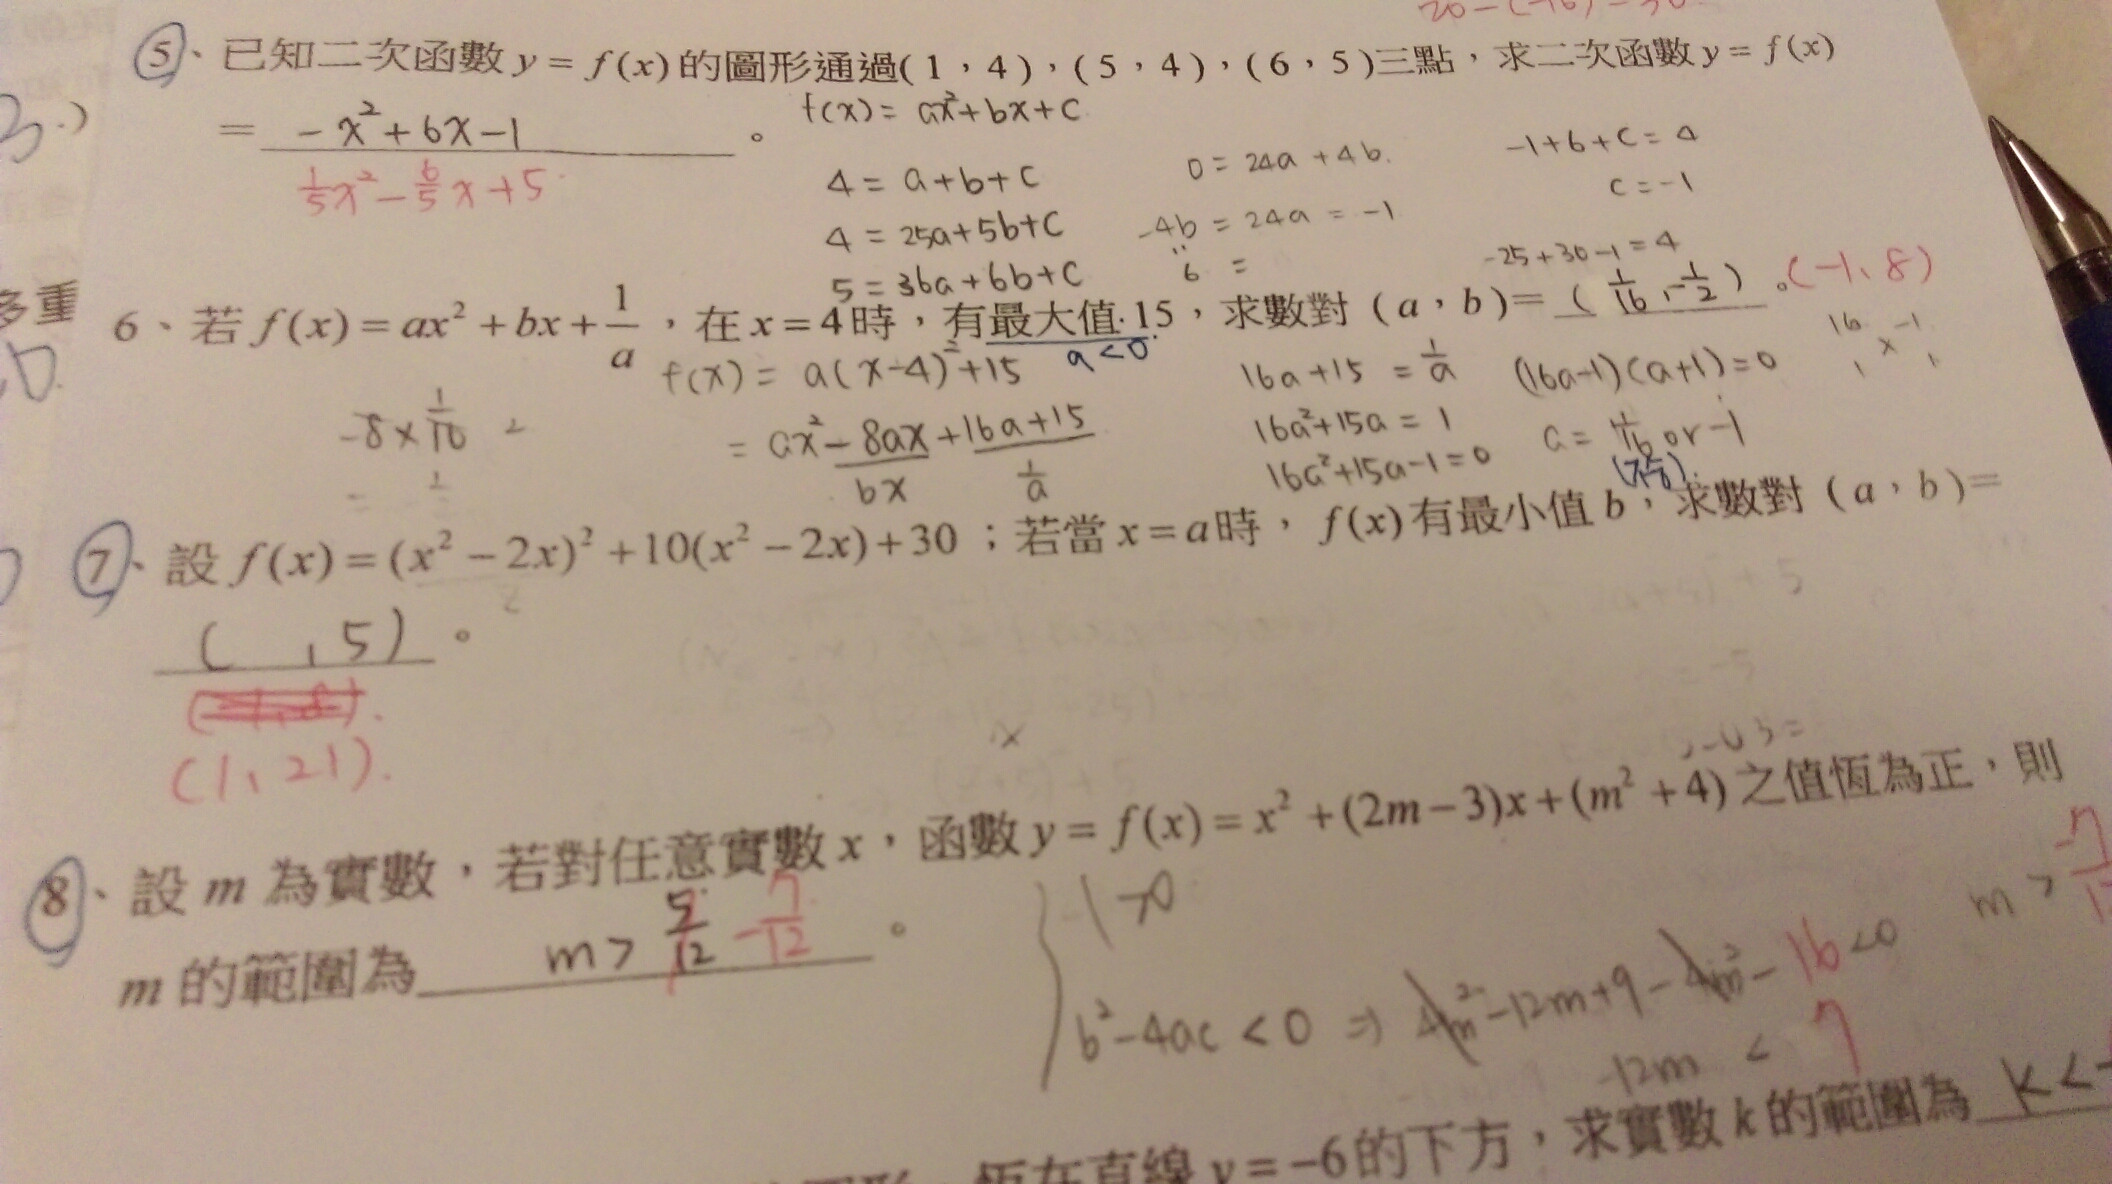 ⑤、已知二次函數 y = f(x) 的圖形通過( 1 , 4 ) , ( 5 , 4 ) , ( 6 , 5 )三點，求二次函數 y = f(x)
= -x²+6x-1 。
1/5x² - 6/5x + 5
f(x) = ax²+bx+c
4 = a+b+c
4 = 25a+5b+c
5 = 36a+6b+c
0 = 24a + 4b.
-4b = 24a = -1
6 =
-1+6+c = 4
c = -1
-25+30-1 = 4
6、若 f(x) = ax² + bx + 1/a ，在 x = 4 時，有最大值 15，求數對 ( a , b ) = ( 1/16 , -1/2 ) 。(-1, 8)
a < 0
f(x) = a(x-4)²+15
= ax²-8ax+16a+15
bx 1/a
16a+15 = 1/a
16a²+15a = 1
16a²+15a-1=0
(16a-1)(a+1)=0
a = 1/16 or -1
16 -1
×
1 1
⑦、設 f(x) = (x² - 2x)² + 10(x² - 2x) + 30 ；若當 x = a 時， f(x) 有最小值 b，求數對 ( a , b ) =
( , 5 ) 。
(1, 21).
⑧、設 m 為實數，若對任意實數 x，函數 y = f(x) = x² + (2m - 3)x + (m² + 4) 之值恆為正，則
m 的範圍為 m > 5/12 -7/12 。
1 >0
b²-4ac < 0 ⇒ 4m²-12m+9-4m²-16<0
-12m < 7
m > -7/12
恆在直線 y = -6 的下方，求實數 k 的範圍為 k <